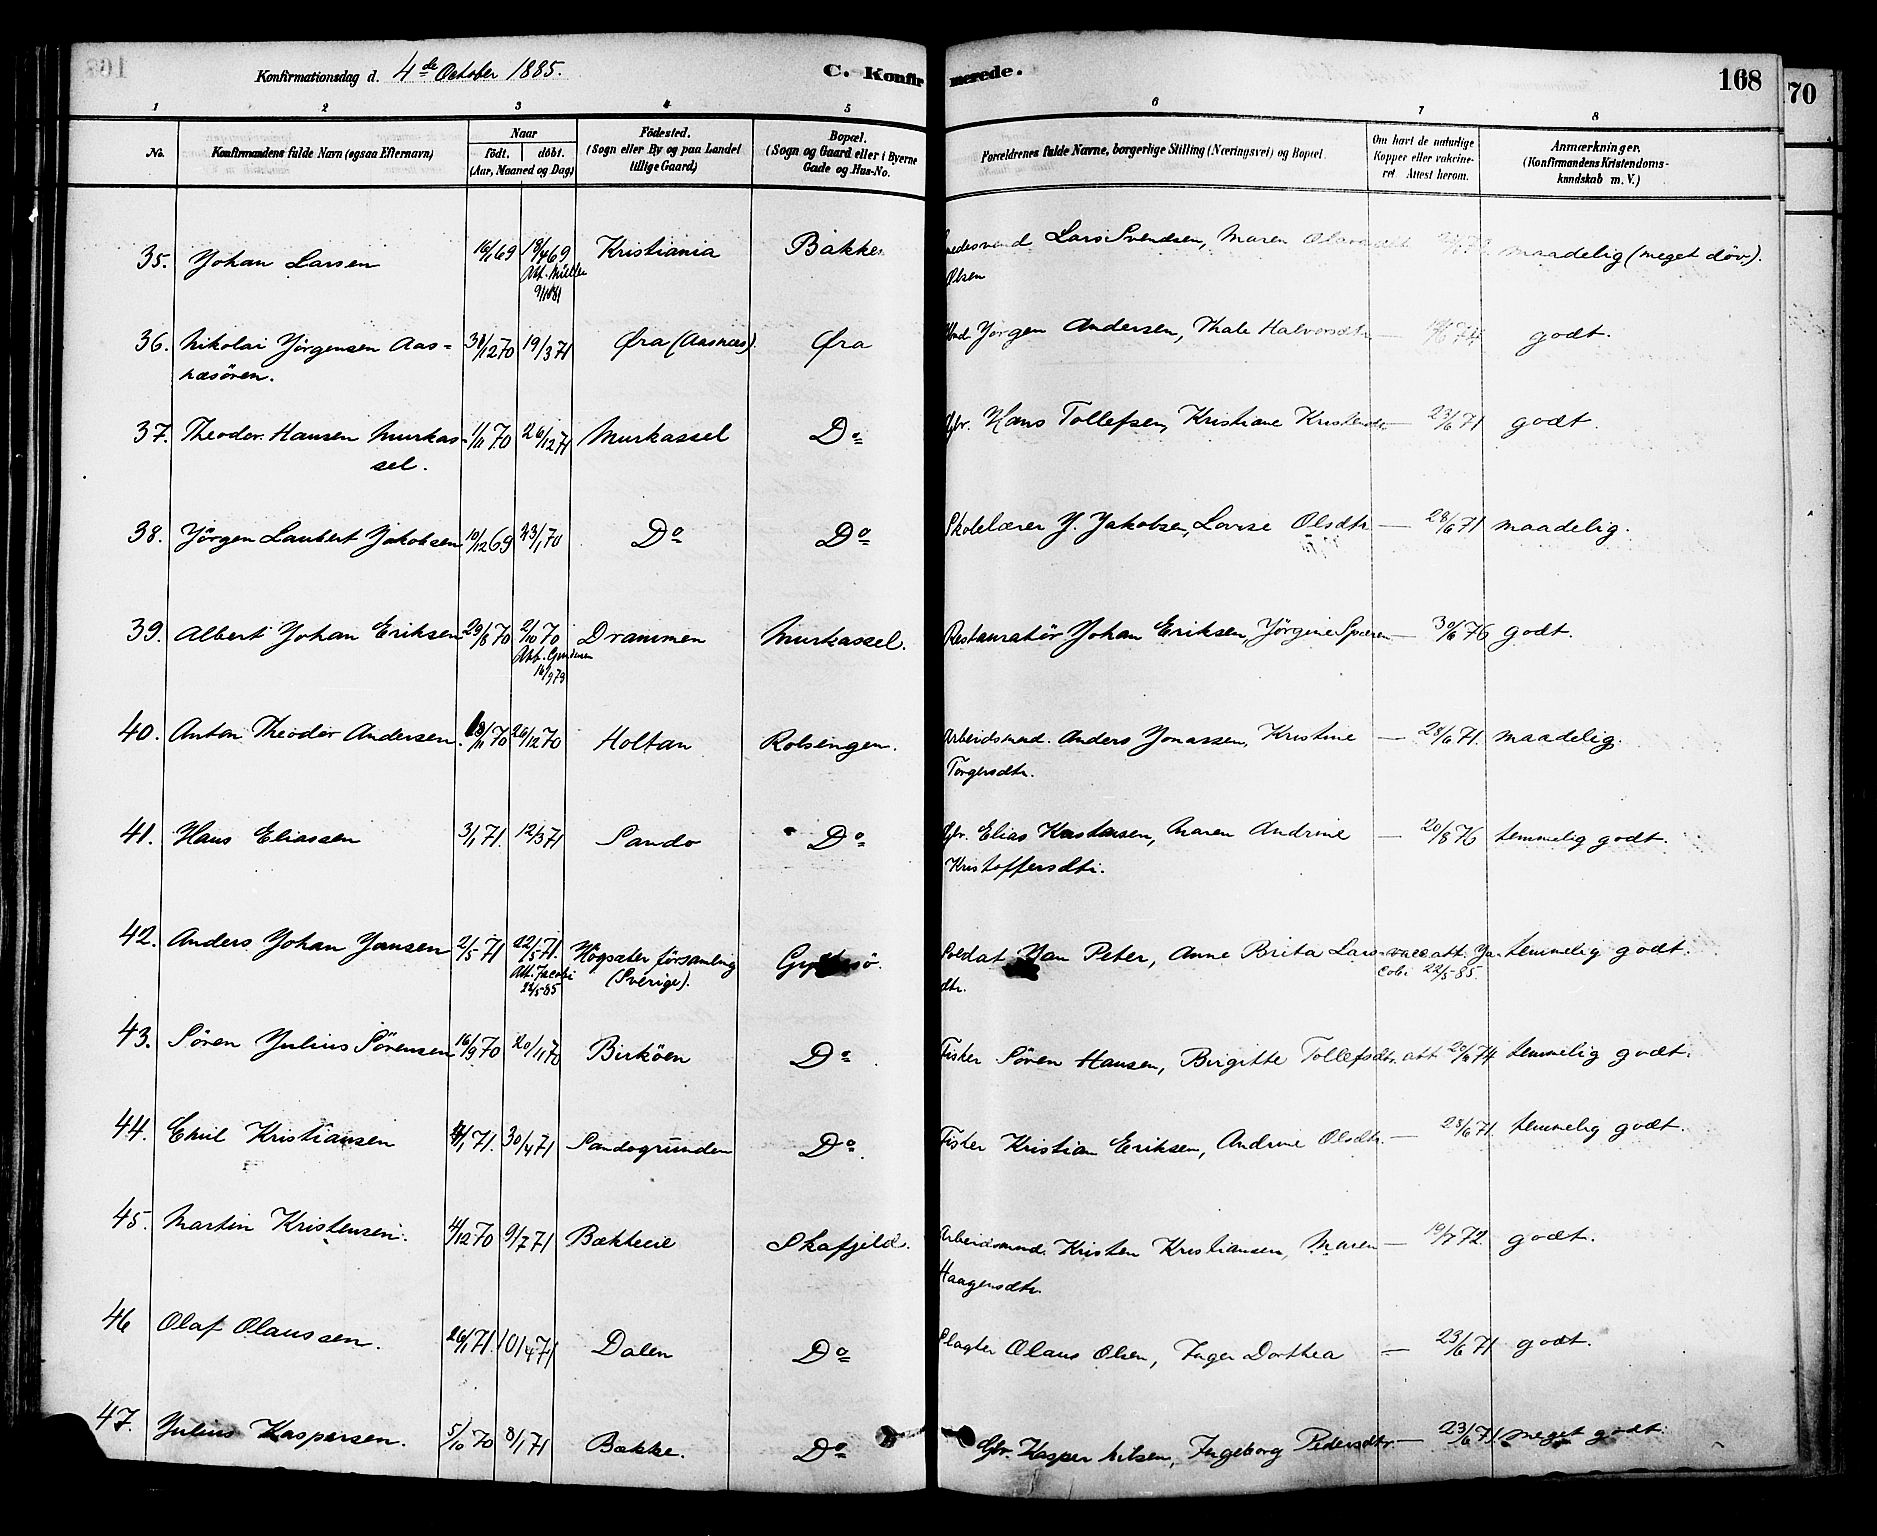 Konfirmationsdag d. 4de October 1885.
C. Konfirmerede.
168
70
1 2 3 4 5 6 7 8
No.
Konfirmandens fulde Navn (ogsaa Efternavn)
Naar
født. døbt.
(Aar, Maaned og Dag)
Fødested.
(Sogn eller By og paa Landet
tillige Gaard)
Bopæl.
(Sogn og Gaard eller i Byerne
Gade og Hus-No.
Forældrenes fulde Navne, borgerlige Stilling (Næringsvei) og Bopæl.
Om havt de naturlige
Kopper eller vakcine-
ret. Attest herom.
Anmærkninger.
(Konfirmandens Kristendoms-
kundskab m. V.)
35. Johan Larsen 69 18/4 69 Kristiania Bakke Lars Svendsen, Maren maadelig (meget döv).
Att. Müller Olsen
36. Nikolai Jörgensen Aas- 12 70 19/3 71 Øra (Aasnæs) Øra Jörgen Andersen, Thale Halvorsdtr. — 74 godt.
næsören.
37. Theodor Hansen Murkas- 1/11 70 26/12 71 Murkassel Do Gbr. Hans Tollefsen, Kristiane — 23/6 71 godt.
sel.
38. Jörgen Laubert Jakobsen 10/12 69 23/1 70 Do Do Skolelærer J. Jakobsen, Lovise Olsdtr. — 28/6 71 maadelig.
39. Albert Johan Eriksen 29/8 70 2/10 70 Drammen Murkassel. Restauratör Johan Eriksen, Jörgine — 30/6 76 godt.
Att.
16/9 79
40. Anton Theodor Andersen. 11 70 26/12 70 Holtan Rolsengen. Arbeidsmnd. Anders Jonassen, Kristine — 28/6 71. maadelig.
Torgersdtr.
41. Hans Eliassen 3/1 71. 12/3 71 Sando Do Gbr. Elias Maren Andrine — 20/8 76 temmelig godt.
Kristoffersdtr.
42. Anders Johan Jansen 2/5 71 22/5 71. Högsäter församling Soldat Jan Peter, Anne Brita Lars- vacc. att. Ja- temmelig godt.
Att. Jacobi (Sverige). dtr. cobi 22/5-85.
22/5-85
43. Sören Julius Sörensen 16/9 70 20/11 70 Birköen Do Fisker Sören Hansen, Birgitte Tollefsdtr. att. 74 temmelig godt.
44. Emil Kristiansen 71. 30/4 71 Sandogrunden Do. Fisker Kristian Eriksen, Andrine Olsdtr. — 28/6 71. temmelig godt.
45. Martin Kristensen. 4/12 70 9/7 71 Skafjeld. Arbeidsmnd. Kristen Kristiansen, Maren — 72. godt.
Haagensdtr.
46 Olaf Olaussen. 26/1 71. 10/4 71 Dalen Do Slagter Olaus Olsen, Inger Dorthea — 23/6 71 godt.
47. Julius Kaspersen. 5/10 70 8/1 71 Bakke. Do Gbr. Kasper Nilsen, Ingeborg Pedersdtr. — 23/6 71 meget godt.